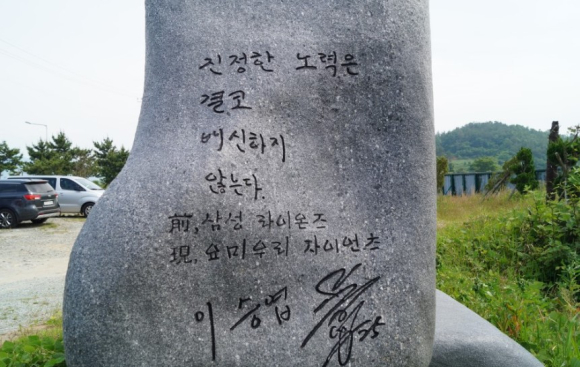 진정한 노력은
결코
배신하지
않는다.
前, 삼성 라이온즈
現, 요미우리 자이언츠
이승엽 25